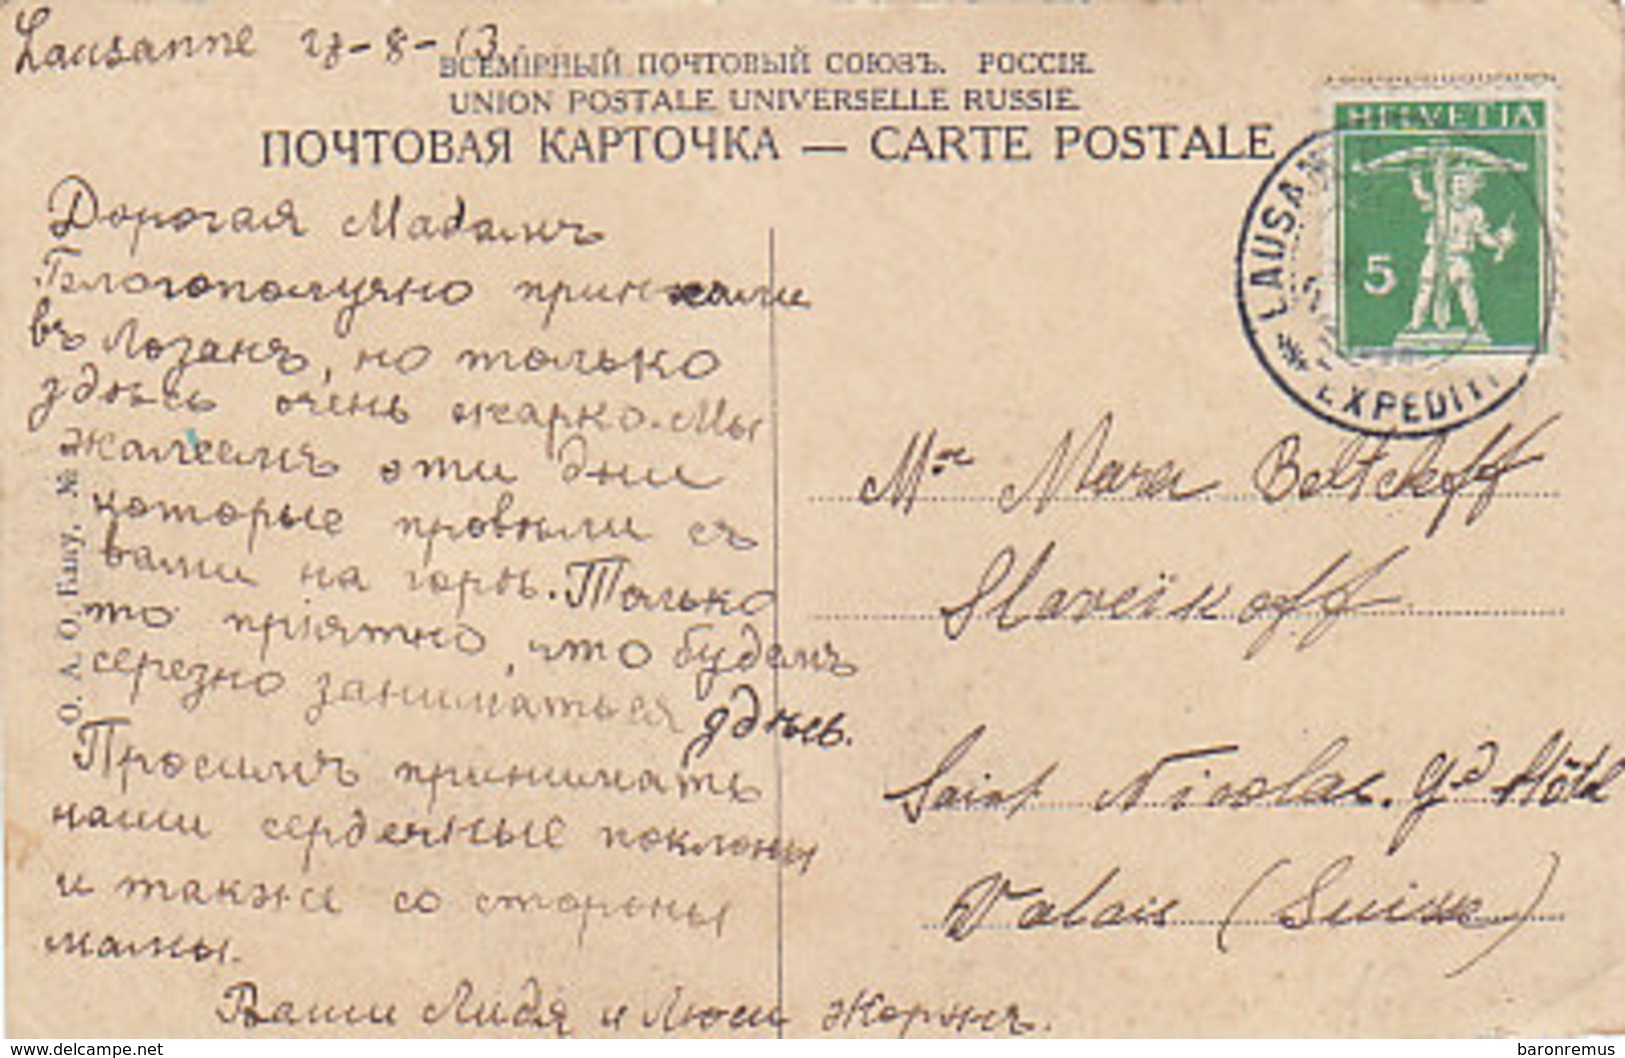 Lausanne 27-8-13
ВСЕМІРНЫЙ ПОЧТОВЫЙ СОЮЗЪ. РОССІЯ.
UNION POSTALE UNIVERSELLE RUSSIE.
ПОЧТОВАЯ КАРТОЧКА — CARTE POSTALE
HELVETIA
5
LAUSAN
EXPEDIT
Дорогая Мадамъ
Благополучно приехали
въ Лозанъ, но только
здѣсь очень жарко. Мы
жалеемъ эти дни
которые провѣли съ
вами на горѣ. Только
то пріятно, что будемъ
серезно заниматься здѣсь.
Просимъ принимать
наши сердечные поклоны
и также со стороны
мамы.
Ваши Лидя и Люси
О. А. О. Баку. №
Mme Mara Beltcheff
Slaveïkoff
Saint Nicolas. Gd Hôtel
Valais (Suisse)
www.delcampe.net
baronremus